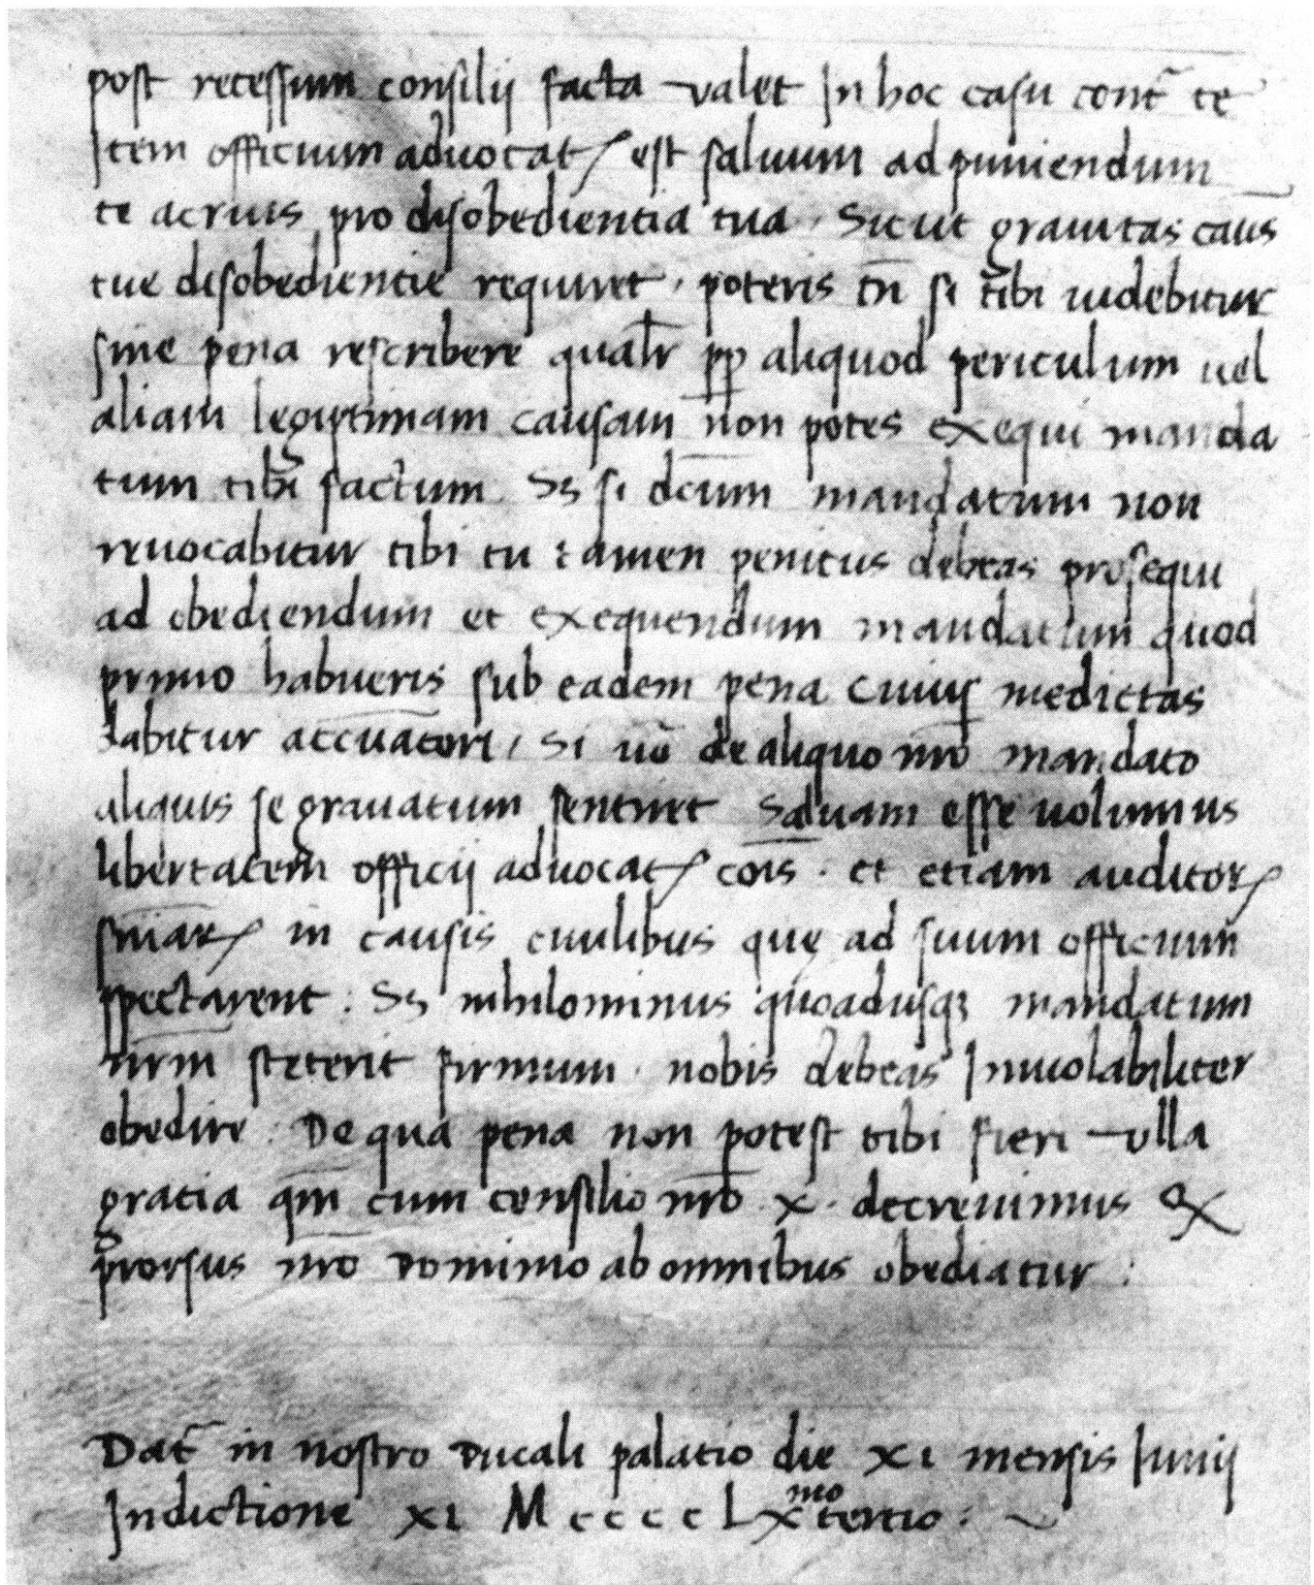 post recessum consilij facta valet In hoc casu cont̄ te
Item officium aduocatꝝ est saluum ad puniendum
te acrius pro disobedientia tua. Sicut grauitas caus̄
tue disobedientie requiret, poteris tn̄ si tibi uidebitur
sine pena rescribere qualr̄ pp̄ aliquod periculum uel
aliam legiptimam causam non potes exequi manda
tum tibi factum Sꝫ si dc̄um mandatum non
reuocabitur tibi tu tamen penitus debeas prosequi
ad obediendum et exequendum mandatum quod
primo habueris sub eadem pena cuius medietas
dabitur accuatori, Si uo᷑ de aliquo nr̄o mandato
aliquis se grauatum sentiret Saluam esse uolumus
libertatem officij aduocatꝝ cōis. et etiam auditorꝝ
sn̄iarꝝ in causis ciuilibus quę ad suum officium
spectarent: Sꝫ nihilominus quoadusqꝫ mandatum
nr̄m steterit firmum. nobis debeas Inuiolabiliter
obedire: De qua pena non potest tibi fieri ulla
gratia qm̄ cum consilio nr̄o .x. decreuimus &
prorsus nr̄o Dominio ab omnibus obediatur:
Dat̄ in nostro Ducali palatio die xi mensis Iunij
Indictione xi M cccc Lx^mo tertio: